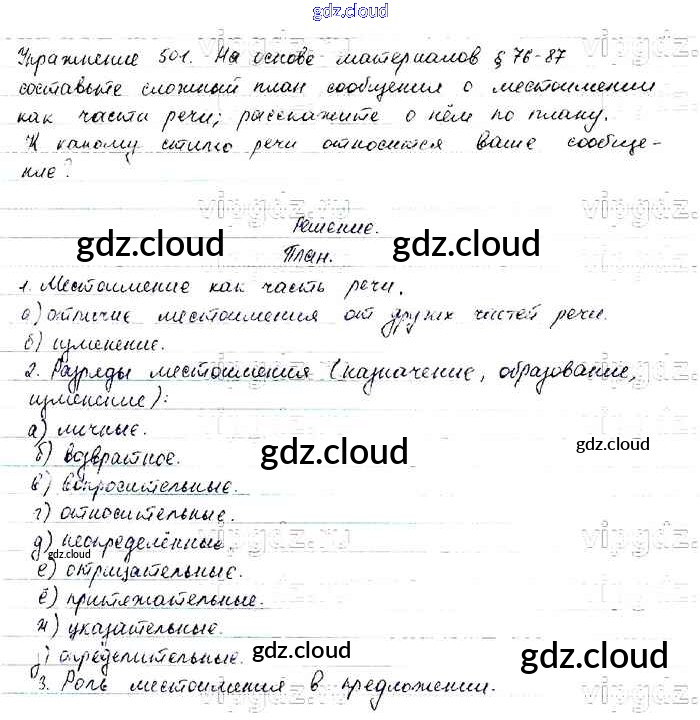 gdz.cloud
Упражнение 501. На основе материалов § 76-87
составьте сложный план сообщения о местоимении
как части речи; расскажите о нём по плану.
К какому стилю речи относится ваше сообще-
ние?
Решение.
gdz.cloud gdz.cloud
План.
1. Местоимение как часть речи.
а) отличие местоимения от других частей речи.
б) изменение.
2. Разряды местоимения (назначение, образование,
изменение):
а) личные.
б) возвратное.
gdz.cloud gdz.cloud
в) вопросительные.
г) относительные.
д) неопределённые.
gdz.cloud
е) отрицательные.
ё) притяжательные.
ж) указательные.
з) определительные.
gdz.cloud gdz.cloud
3. Роль местоимения в предложении.